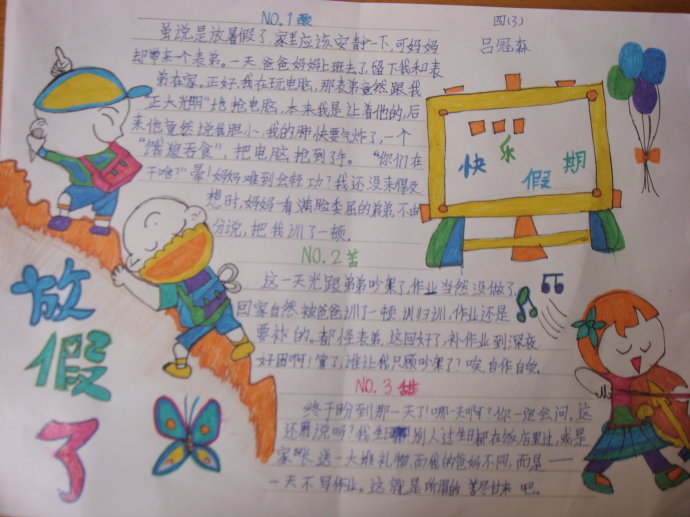 NO.1酸
四(3)
吕冠森
虽说是放暑假了,家里应该安静一下,可妈妈
却带来一个表弟。一天,爸爸妈妈上班去了,留下我和表
弟在家。正好,我在玩电脑,那表弟竟然跟我
"正大光明"地抢电脑,本来我是让着他的,后
来他竟然说我胆小,我的肺快要气炸了,一个
"饿狼吞食",把电脑抢到了手。"你们在
干啥?"晕!妈妈难到会轻功?我还没来得及
想时,妈妈一看满脸委屈的弟弟,不由
分说,把我训了一顿。
快乐假期
NO.2苦
这一天光跟弟弟吵架了,作业当然没做了,
回家自然被爸爸训了一顿,训归训,作业还是
要补的。都怪表弟,这回好了,补作业到深夜
好困啊!算了,谁让我只顾吵架了?唉,自作自受。
NO.3甜
终于盼到那一天了!哪一天啊?你一定会问,这
还用说吗?我生日!别人过生日都在饭店里过,或是
家长送一大堆礼物,而我的爸妈不同,而是——
一天不写作业。这就是所谓的苦尽甘来吧。
放假了